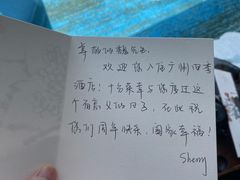 尊敬的魏先生
欢迎您入住广州四季
酒店！十分荣幸与您度过这
个有意义的日子，在此祝
你们周年快乐，阖家幸福！
Sherry